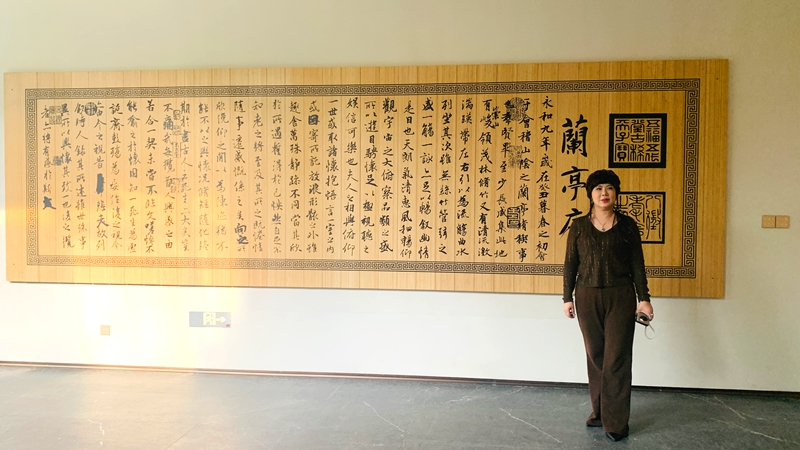 蘭亭序
永和九年歲在癸丑暮春之初會
于會稽山陰之蘭亭脩稧事
也羣賢畢至少長咸集此地
有崇山峻領茂林脩竹又有清流激
湍暎帶左右引以為流觴曲水
列坐其次雖無絲竹管弦之
盛一觴一詠亦足以暢叙幽情
是日也天朗氣清惠風和暢仰
觀宇宙之大俯察品類之盛
所以遊目騁懷足以極視聽之
娛信可樂也夫人之相與俯仰
一世或取諸懷抱悟言一室之內
或因寄所託放浪形骸之外雖
趣舍萬殊靜躁不同當其欣
於所遇蹔得於己怏然自足不
知老之將至及其所之既惓情
隨事遷感慨係之矣向之所
欣俛仰之閒以為陳迹猶不
能不以之興懷況脩短隨化終
期於盡古人云死生亦大矣豈
不痛哉每攬昔人興感之由
若合一契未嘗不臨文嗟悼不
能喻之於懷固知一死生為虛
誕齊彭殤為妄作後之視今
亦由今之視昔悲夫故列
叙時人錄其所述雖世殊事
異所以興懷其致一也後之攬
者亦將有感於斯文
五福五代
堂古稀
天子寶